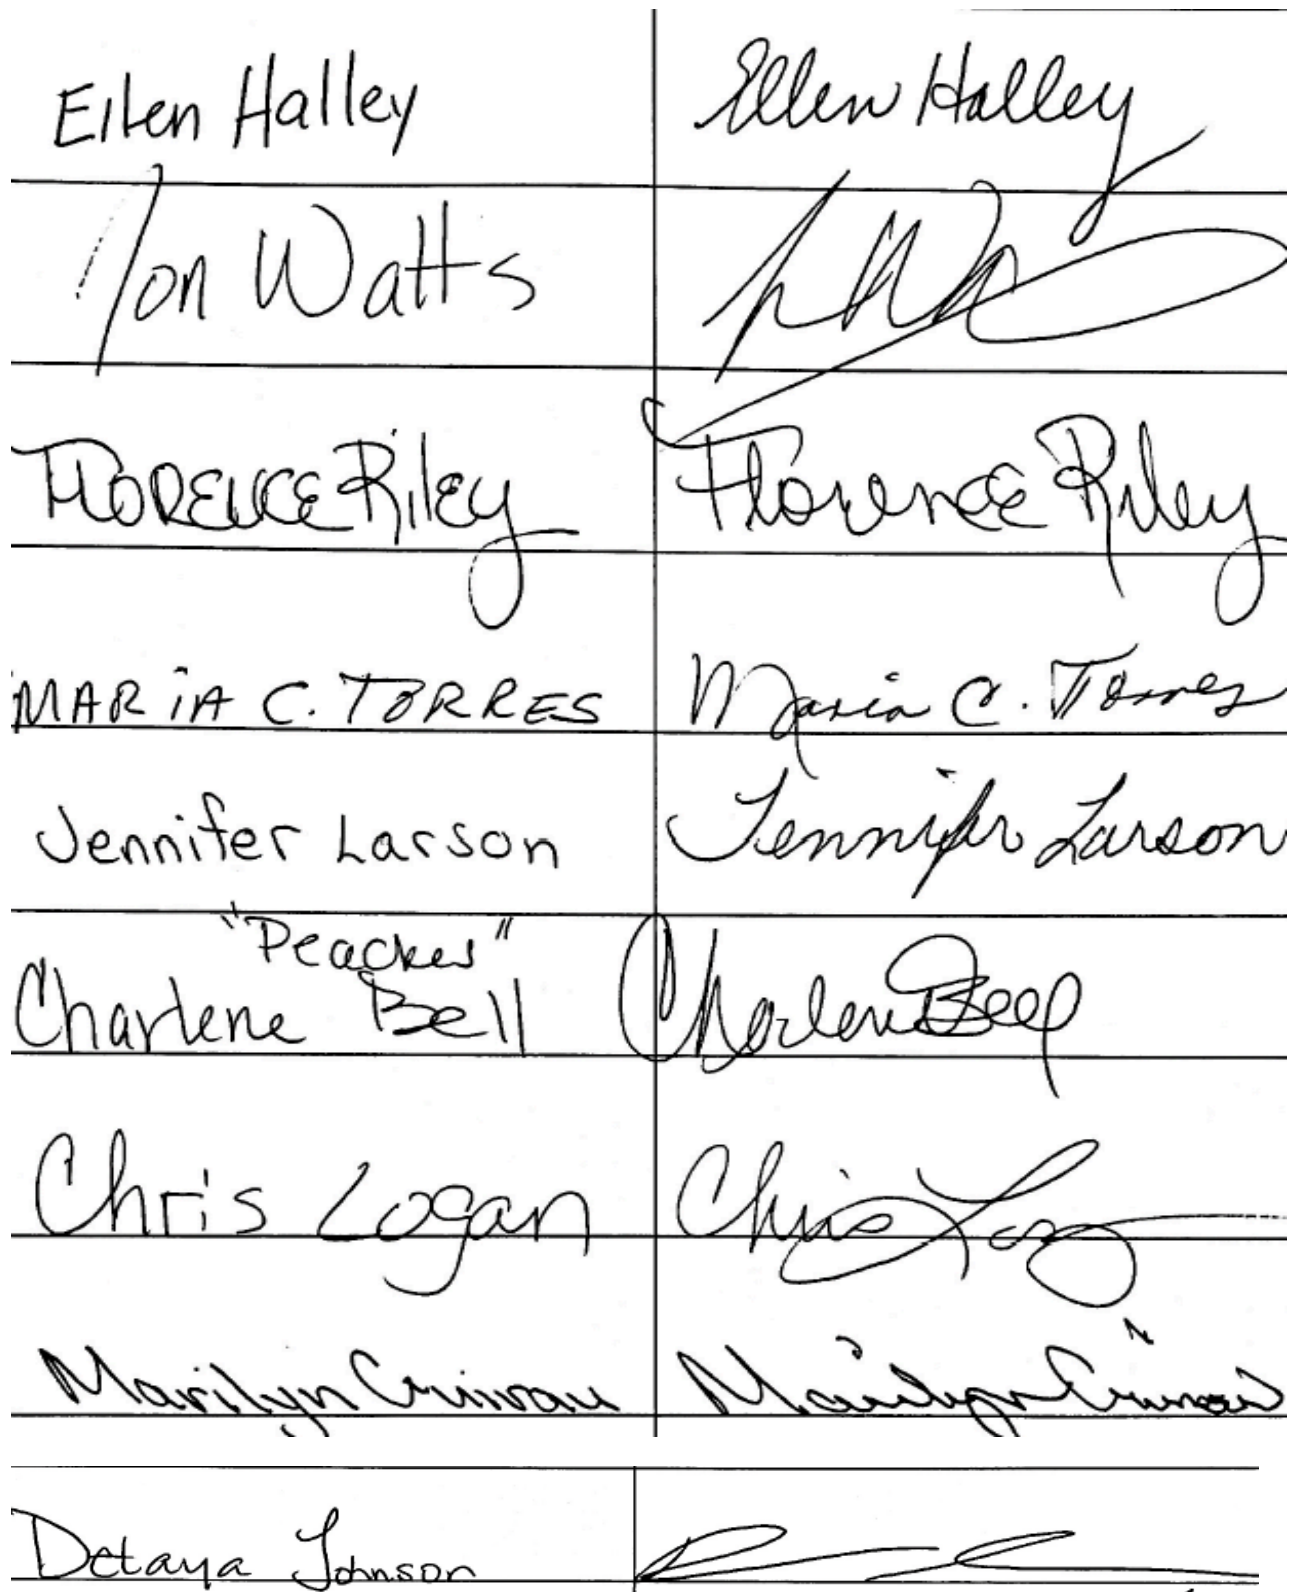 Ellen Halley Ellen Halley
Ton Watts
FLORENCE Riley Florence Riley
MARIA C. TORRES Maria C. Torres
Jennifer Larson Jennifer Larson
"Peaches"
Charlene Bell Charlene Bell
Chris Logan Chris Log
Marilyn Marilyn
Detaya Johnson